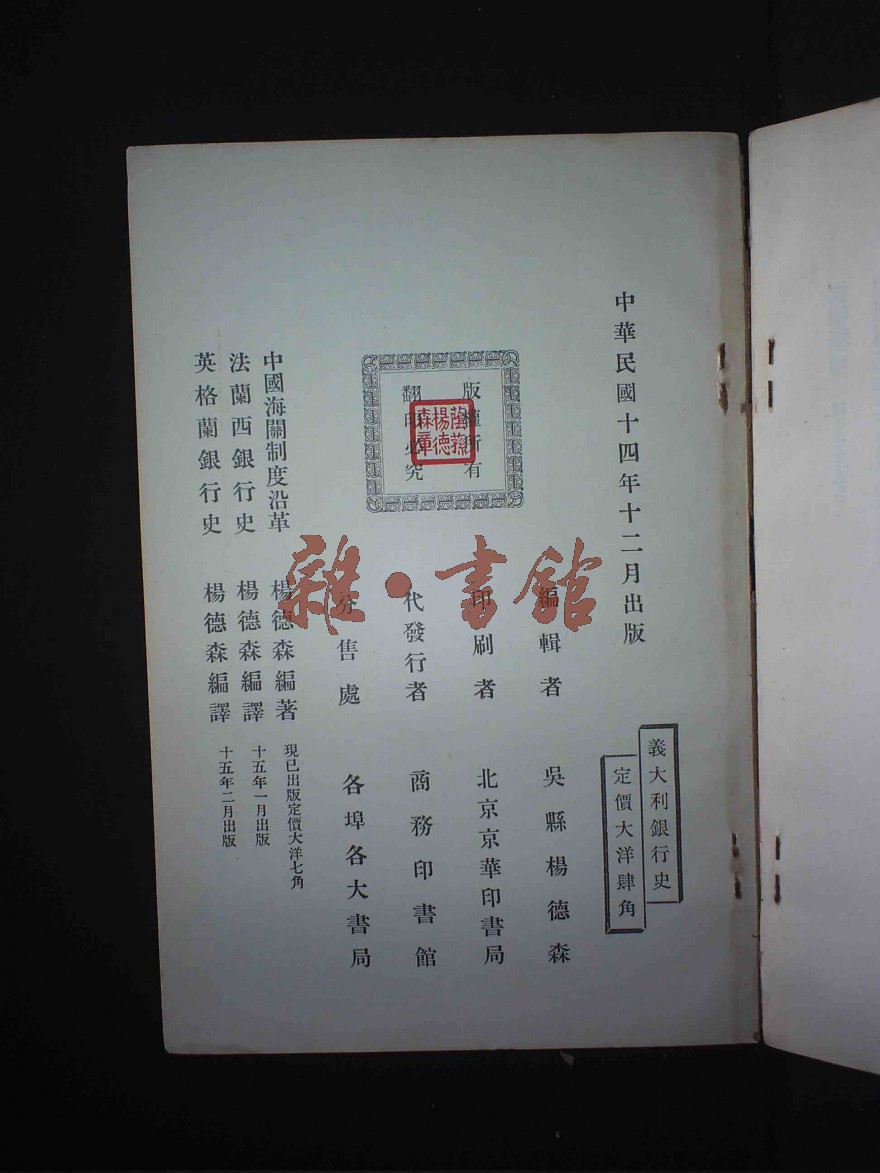 中華民國十四年十二月出版
義大利銀行史
定價大洋肆角
版權所有
翻印必究
楊德
森章
編輯者 吳縣楊德森
印刷者 北京京華印書局
代發行者 商務印書館
分售處 各埠各大書局
中國海關制度沿革 楊德森編著 現已出版定價大洋七角
法蘭西銀行史 楊德森編譯 十五年一月出版
英格蘭銀行史 楊德森編譯 十五年二月出版
雜·書館